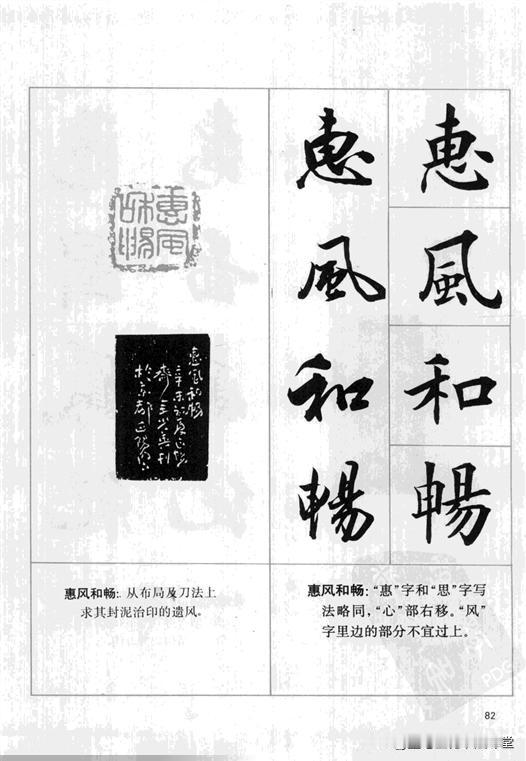 惠風和暢
惠風和暢
惠風和暢
惠風和暢
惠风和畅:从布局及刀法上
求其封泥治印的遗风。
惠风和畅:“惠”字和“思”字写
法略同,“心”部右移。“风”
字里边的部分不宜过上。
82